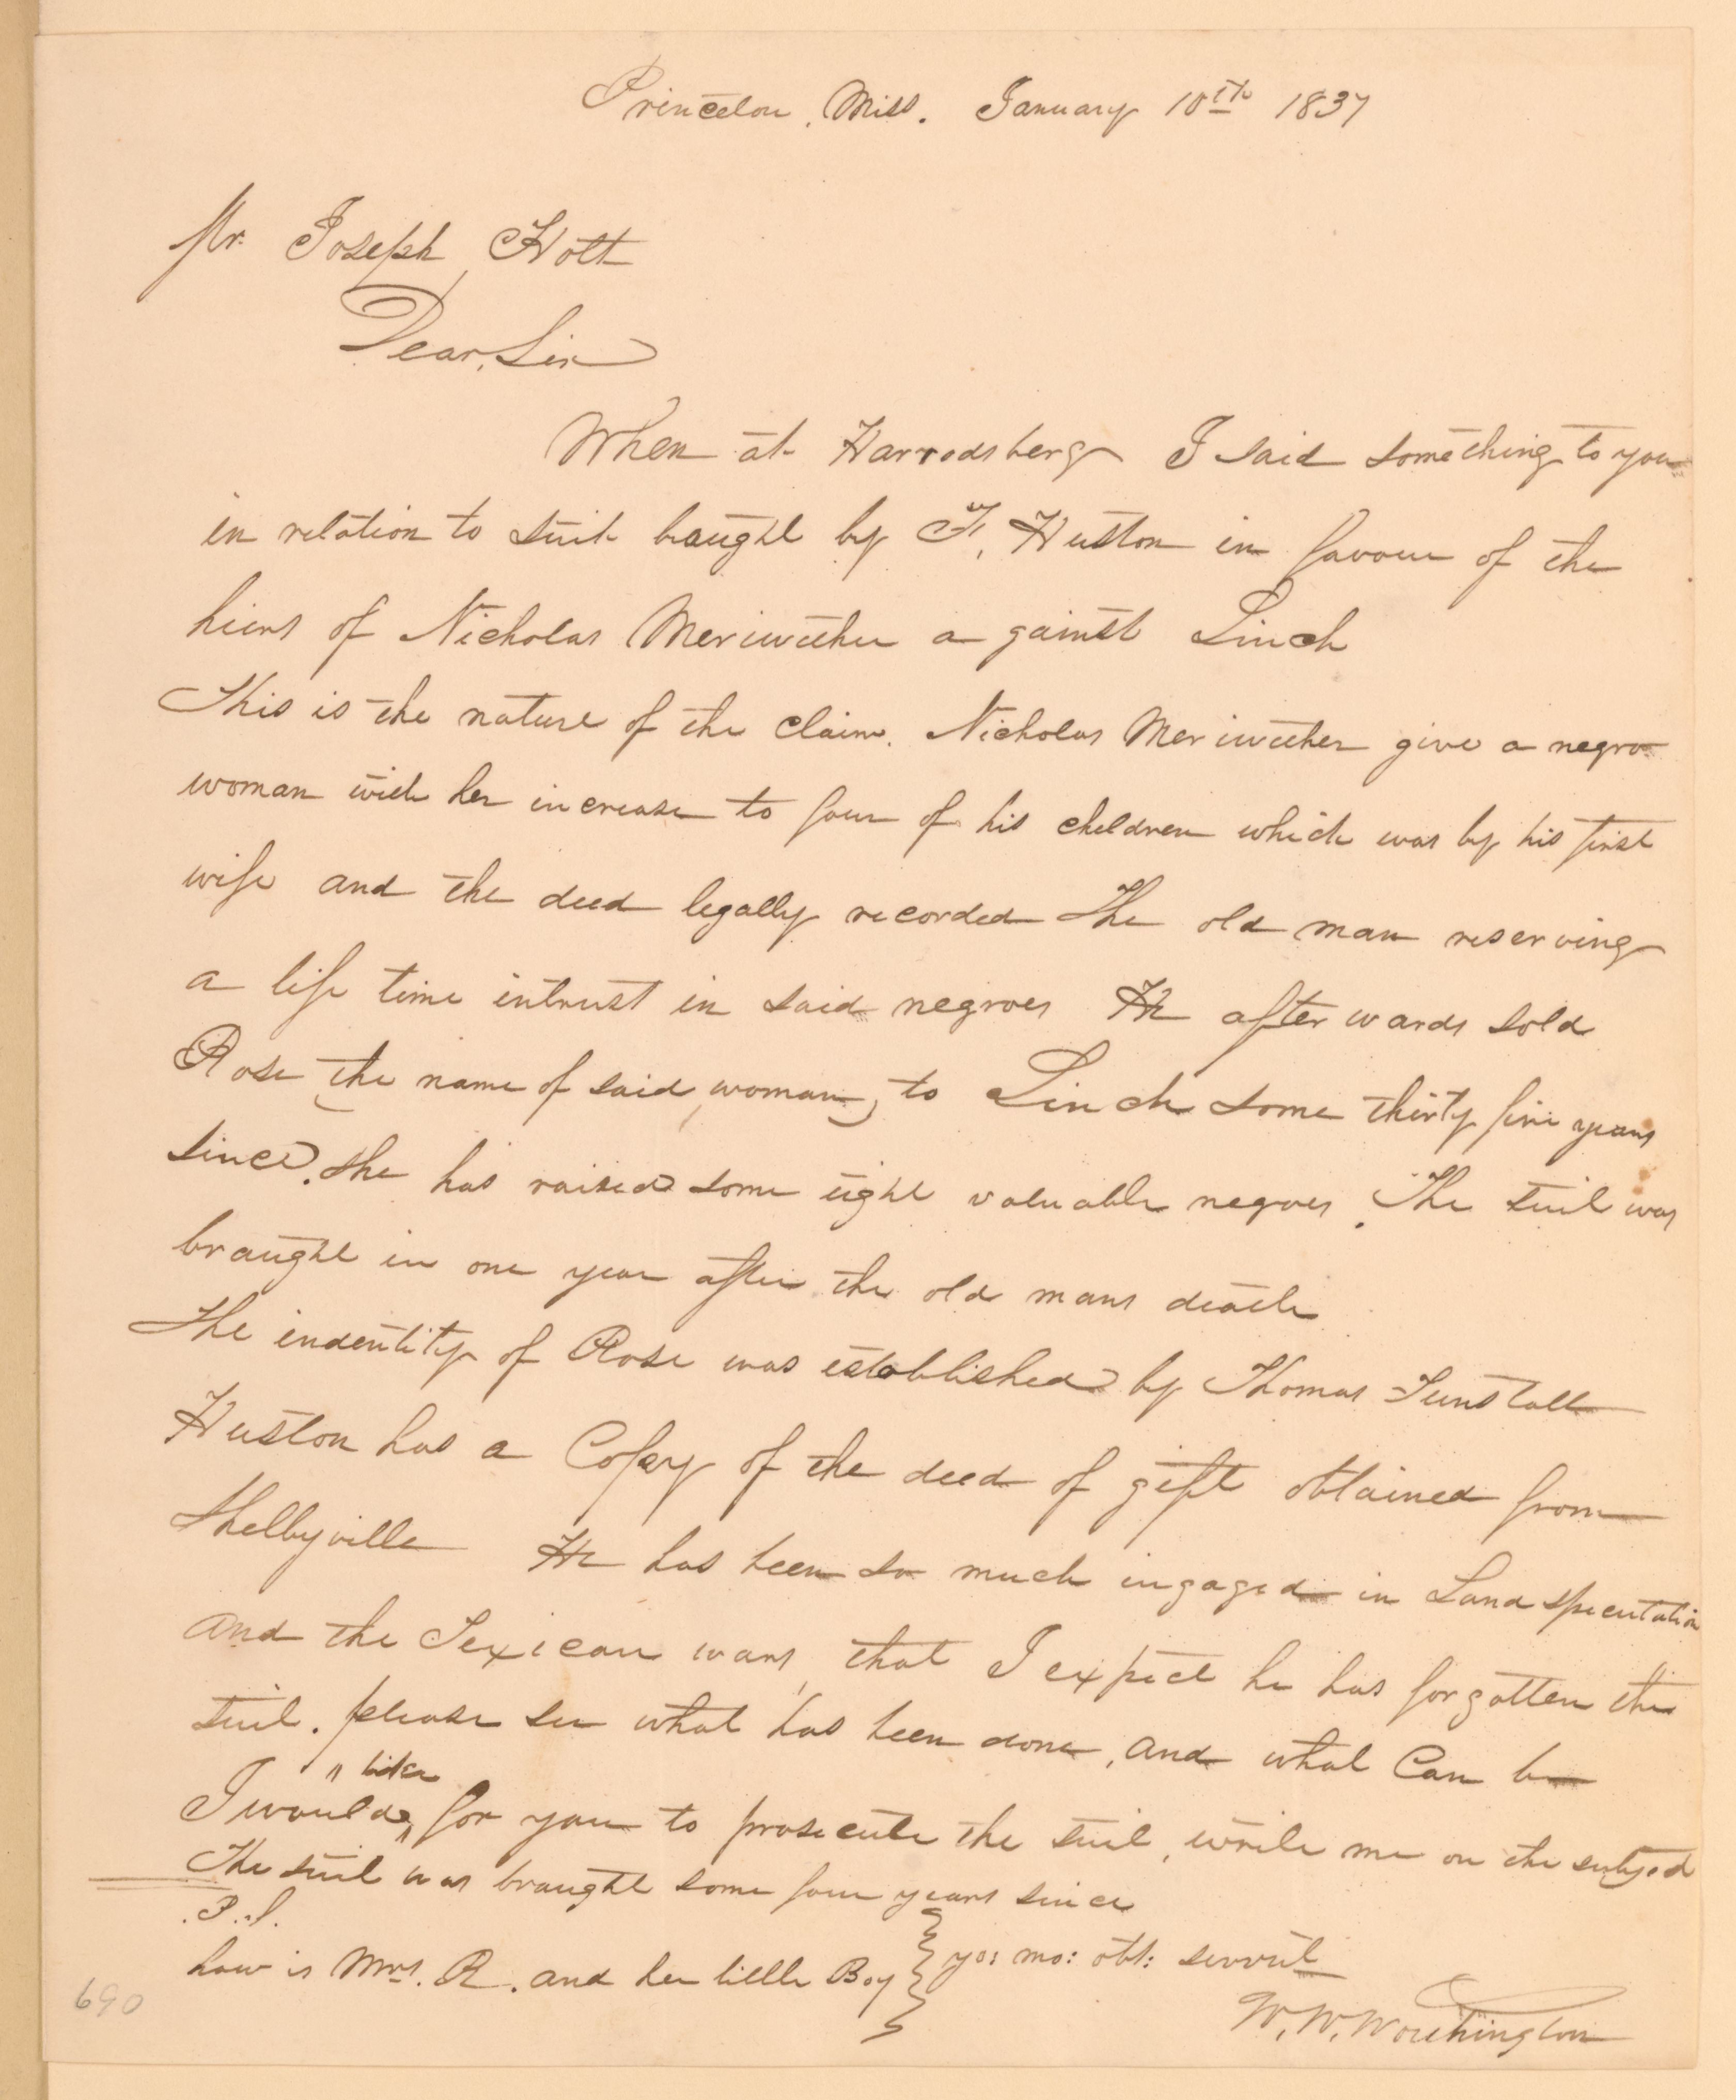 Princeton, Miss. January 10th 1837
Mr. Joseph Holt
Dear, Sir
When at Harrodsberg I said something to you
in relation to suit baught by F, Huston in favour of the
hiers of Nicholas Meriwether a gainst Linch
This is the nature of the claim. Nicholas Meriwether give a negro
woman with her increase to four of his children which was by his first
wife and the deed legally recorded The old man reserving
a life time intrust in said negroes He after wards sold
Rose (the name of said woman) to Linch some thirty five years
since. She has raised some eight valuable negroes. The suit was
braught in one year after the old mans death
The indentity of Rose was established by Thomas Tunstall
Huston has a Copey of the deed of gift obtained from
Shelbyville He has been so much ingaged in Land specutation
and the Texican wars, that I expect he has forgotten the
suit. please see what has been done, and what Can be
" like
I would " for you to prosecute the suit, write me on the subject
The suit was braught some four years since
P.S.
how is Mrs. R. and her little Boy } yos mo: obt: servnt
W. W. Worthington
690